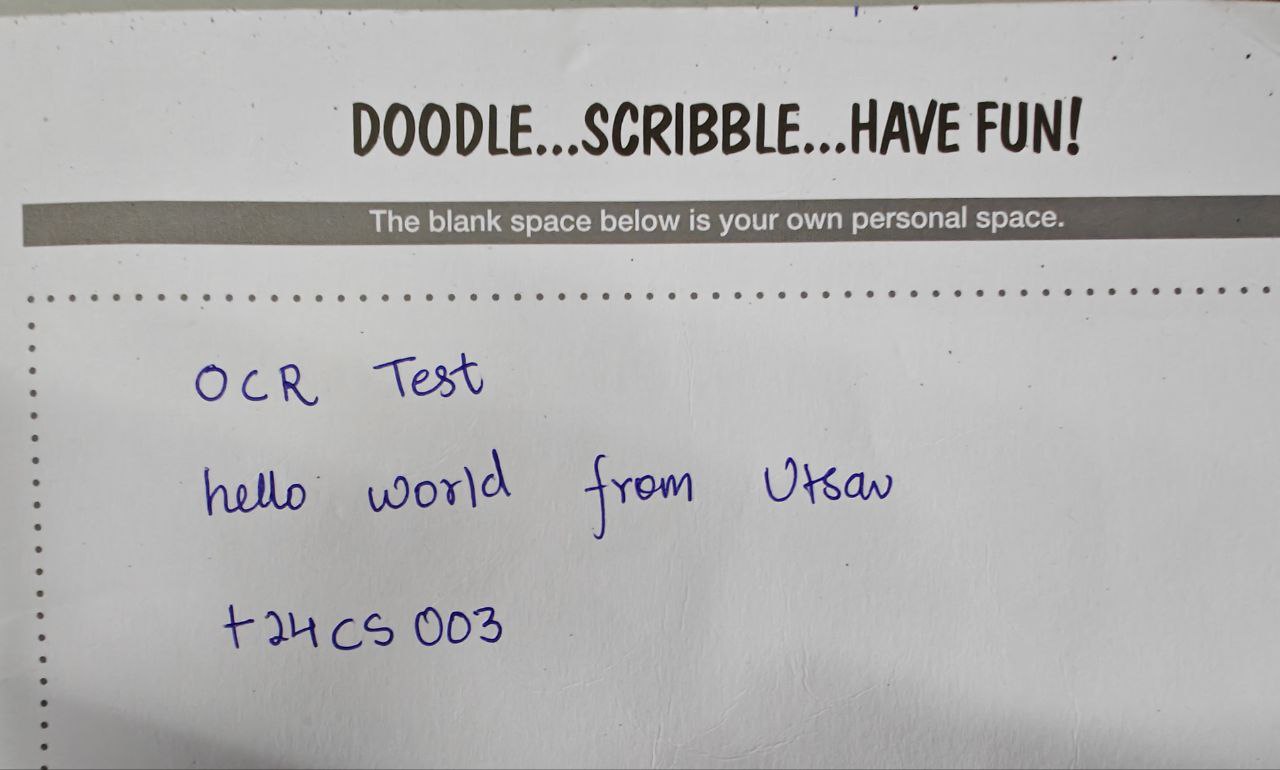 DOODLE...SCRIBBLE...HAVE FUN!
The blank space below is your own personal space.
OCR Test
hello world from Utsav
t24CS003